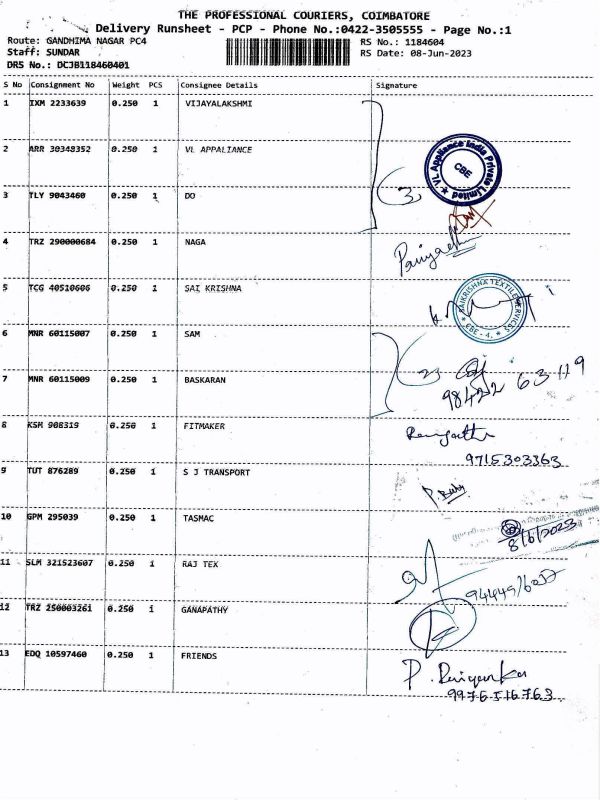 THE PROFESSIONAL COURIERS, COIMBATORE
Delivery Runsheet - PCP - Phone No.:0422-3505555 - Page No.:1
Route: GANDHIMA NAGAR PC4 RS No.: 1184604
Staff: SUNDAR RS Date: 08-Jun-2023
DRS No.: DCJB118460401
S No Consignment No Weight PCS Consignee Details Signature
1 IXM 2233639 0.250 1 VIJAYALAKSHMI
2 ARR 30348352 0.250 1 VL APPALIANCE
VL Appliance India Private Limited
CBE
3 TLY 9043460 0.250 1 DO
3
4 TRZ 290000684 0.250 1 NAGA
5 TCG 40510606 0.250 1 SAI KRISHNA
SAIKRISHNA TEXTILE SERVICES
CBE - 4.
6 MNR 60115007 0.250 1 SAM
2
7 MNR 60115009 0.250 1 BASKARAN
98422 63119
8 KSM 908319 0.250 1 FITMAKER
9715303363
9 TUT 876289 0.250 1 S J TRANSPORT
P. Baby
10 GPM 295039 0.250 1 TASMAC
8/6/2023
11 SLM 321523607 0.250 1 RAJ TEX
12 TRZ 250003261 0.250 1 GANAPATHY
13 EDQ 10597460 0.250 1 FRIENDS
9976516763